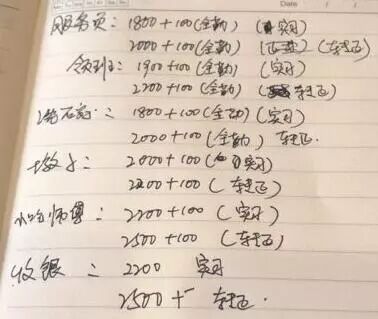 Date
服务员：1800+100(全勤) (实习)
2000+100(全勤) (转正)
领班：1900+100(全勤) (实习)
2200+100(全勤) (转正)
1800+100(全勤)(实习)
2000+100(全勤) 转正.
墩子：2000+100( 实习)
2200+100(转正)
小吃师傅：2200+100(实习)
2500+100(转正)
收银：2200 实习
2500+ 转正.